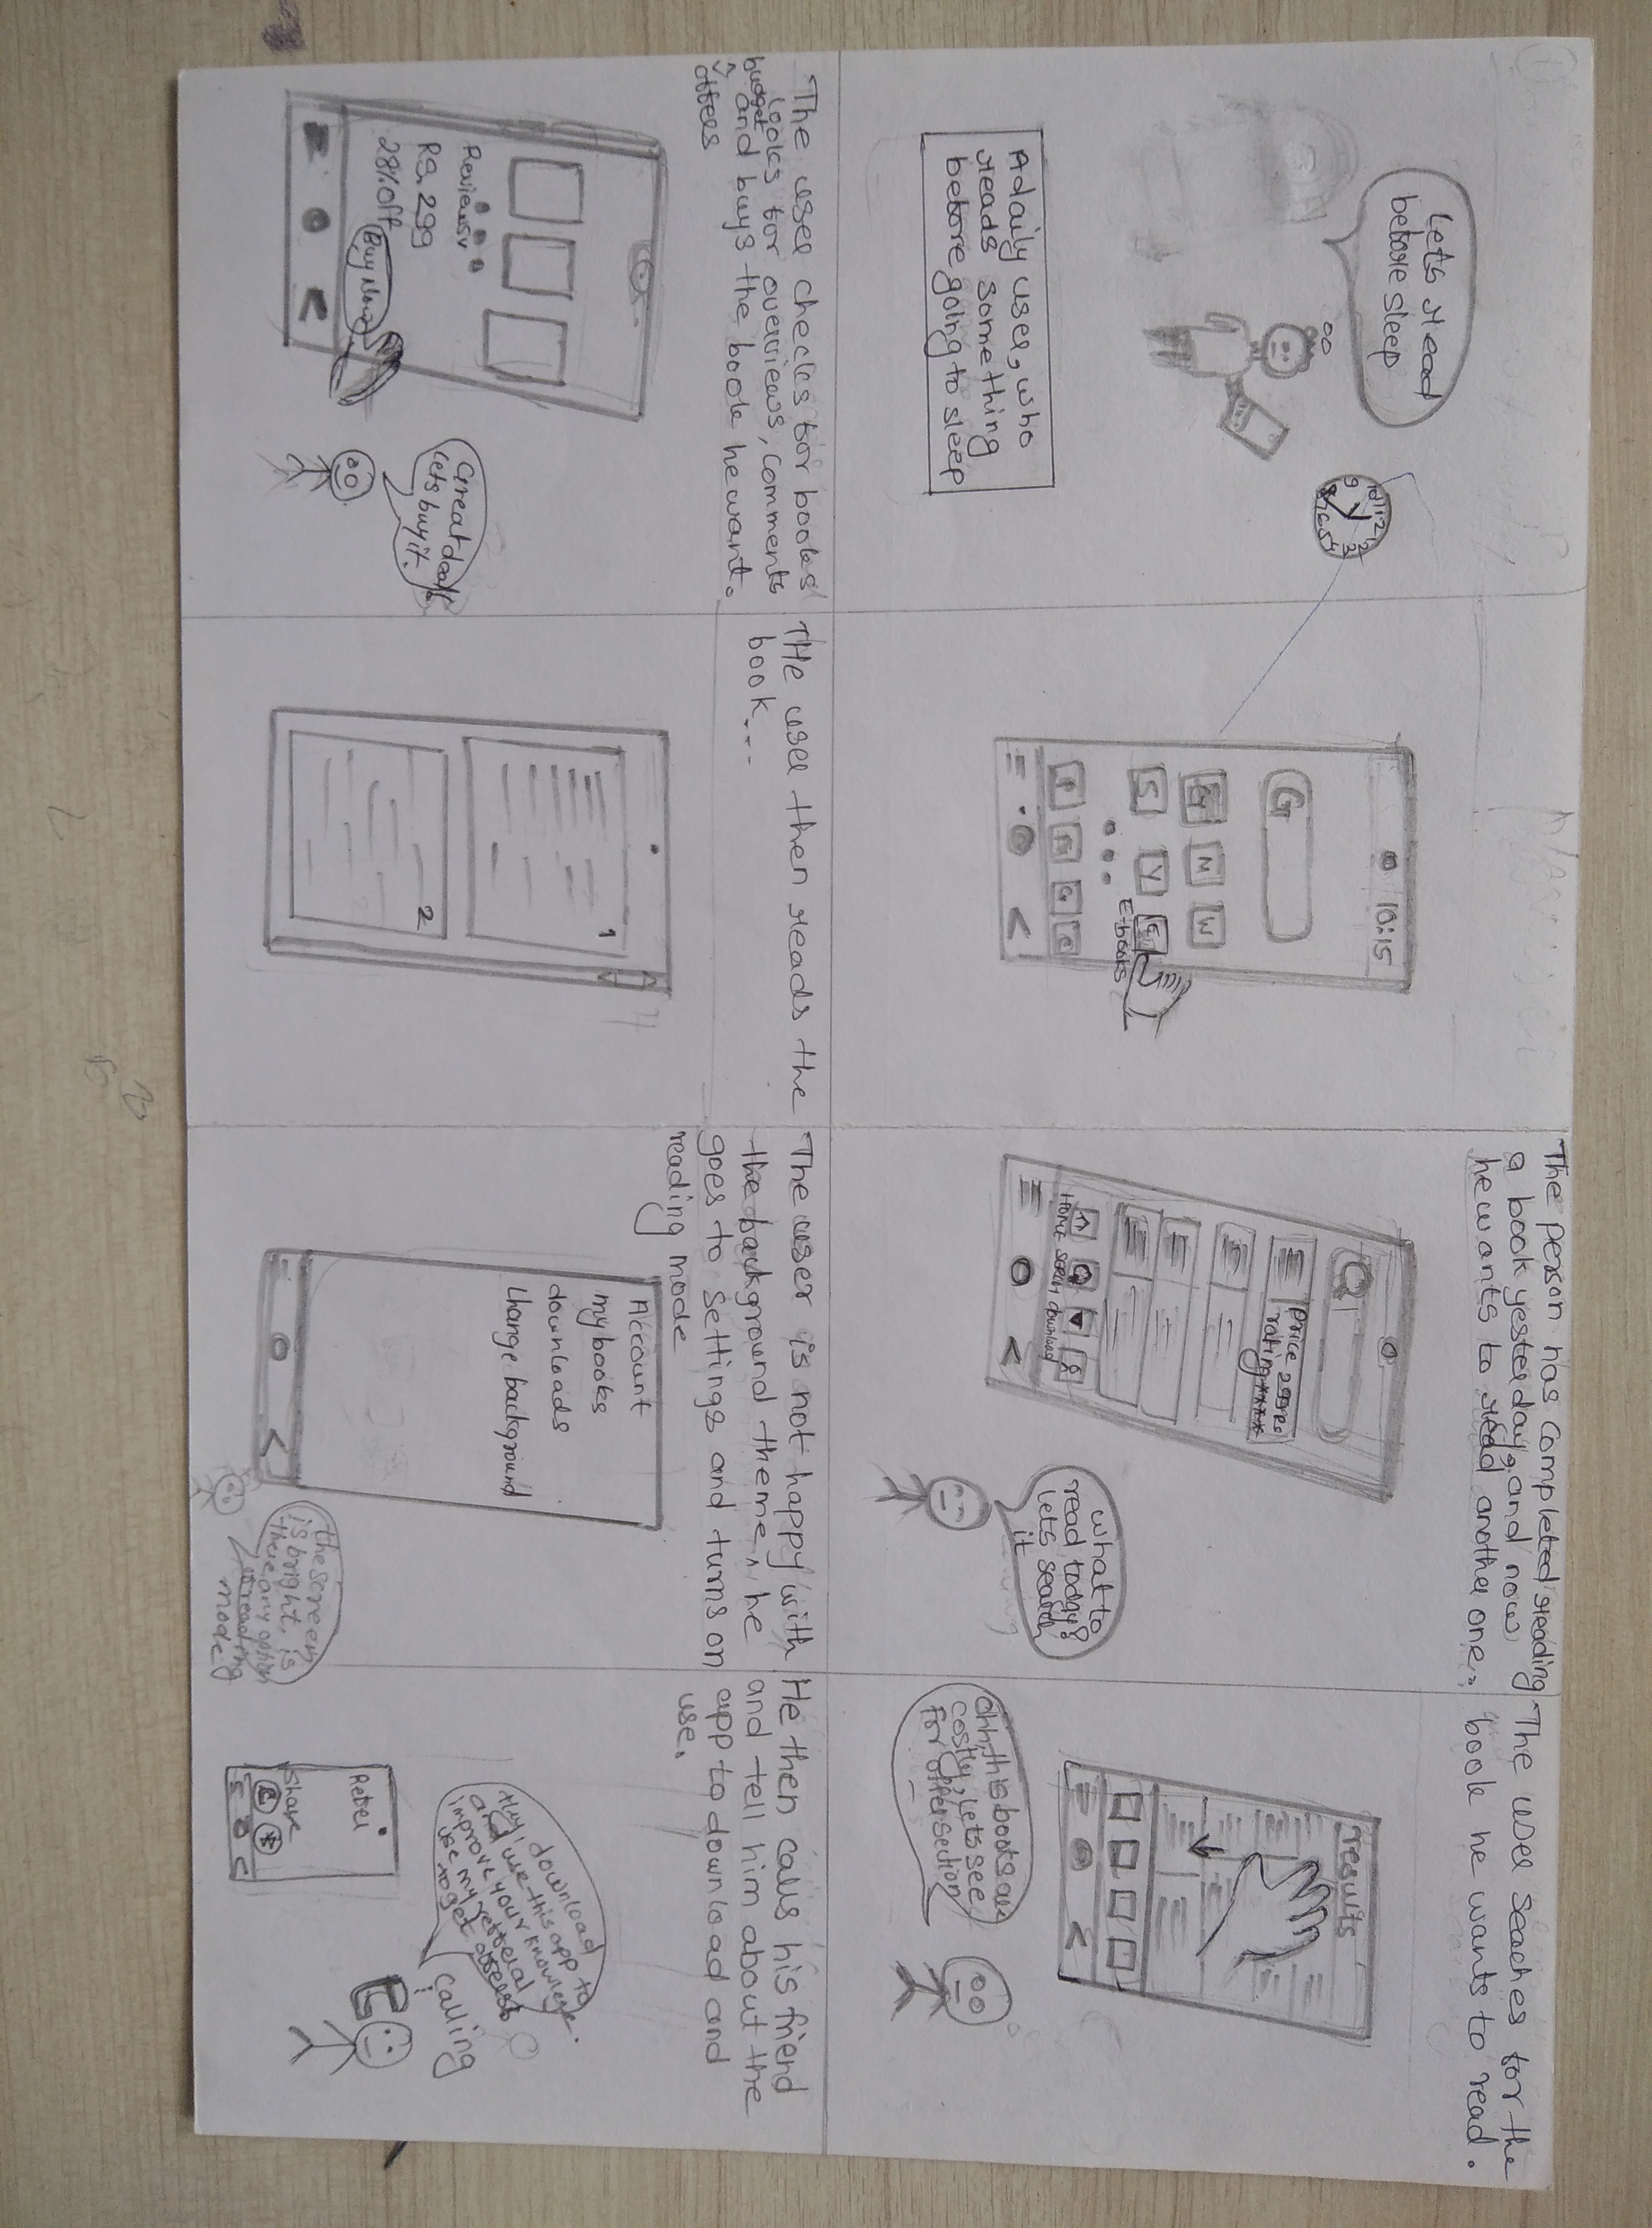 Let's read
before sleep
10 11 12 1 2
9 3
8 7 6 5 4
A daily user, who
reads something
before going to sleep
10:15
G
G M W
S Y E
E-books
The person has completed reading
a book yesterday, and now
he wants to read another one.
Price 299Rs
rating ****
Home search download
what to
read today?
lets search
it
The user seaches for the
book he wants to read.
results
ohh, this books are
costly, lets see
for offer section
The user checks for books
looks for overviews, comments
budget and buys the book he want.
offers
Reviews
RS. 299
28% off
Buy Now
Great deal!
lets buy it.
THe user then reads the
book...
1
2
The user is not happy with
the background theme, he
goes to settings and turns on
reading mode
Account
my books
downloads
Change background
the screen
is bright, is
there any option
reading
mode
He then calls his friend
and tell him about the
app to download and
use.
Refer
Share
Hey, download
and use this app to
improve your knowledge.
use my referal
to get offers
calling